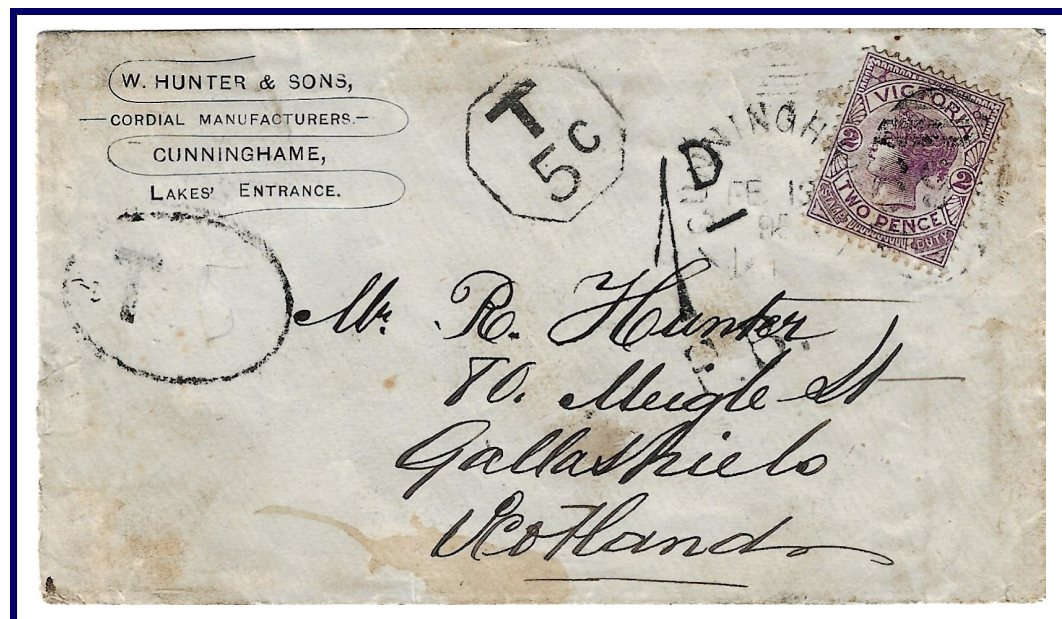 W. HUNTER & SONS,
CORDIAL MANUFACTURERS.
CUNNINGHAME,
LAKES' ENTRANCE.
T
5c
T 5
1D
CUNNINGH
FE 13
VICTORIA
2 2
TWO PENCE
STAMP DUTY
Mr. R. Hunter
80. Meigle St
Gallashiels
Scotland